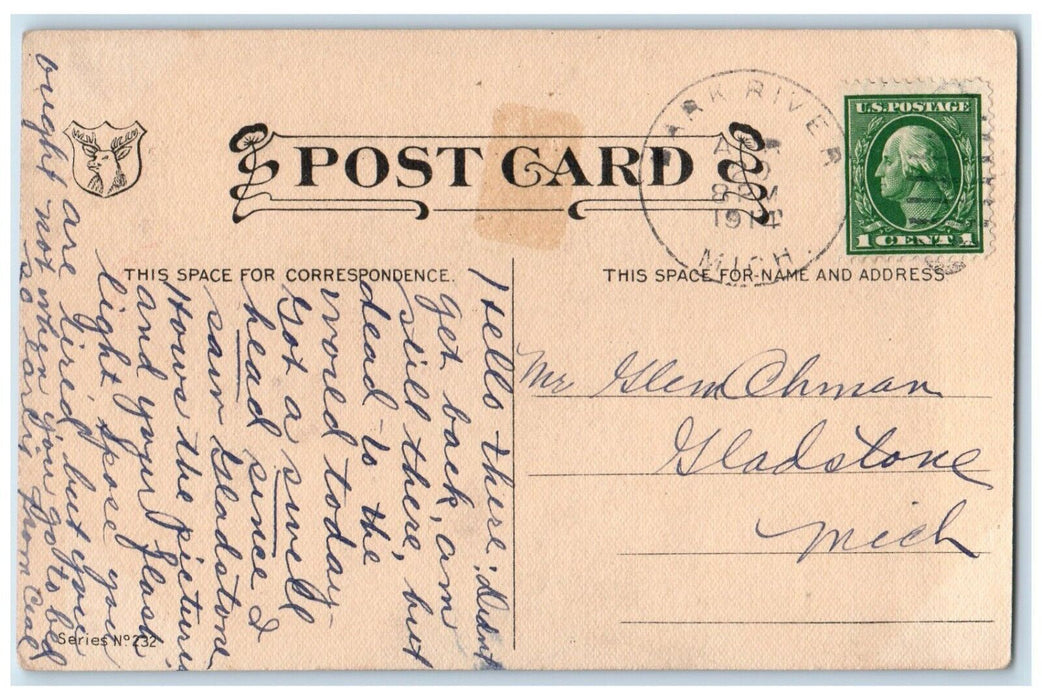 POST CARD
BARK RIVER
8 PM
1914
MICH.
U.S. POSTAGE
1 CENT 1
THIS SPACE FOR CORRESPONDENCE.
THIS SPACE FOR NAME AND ADDRESS
Mr Glen Ohman
Gladstone
Mich
Hello there; Didnt
get back, am
still there, but
dead to the
world today.
Got a swell
head since I
saw Gladstone
Hows the picture
and your
light spose you
are tired but you
ought not when you go to bed
so early From
Series Nº 232